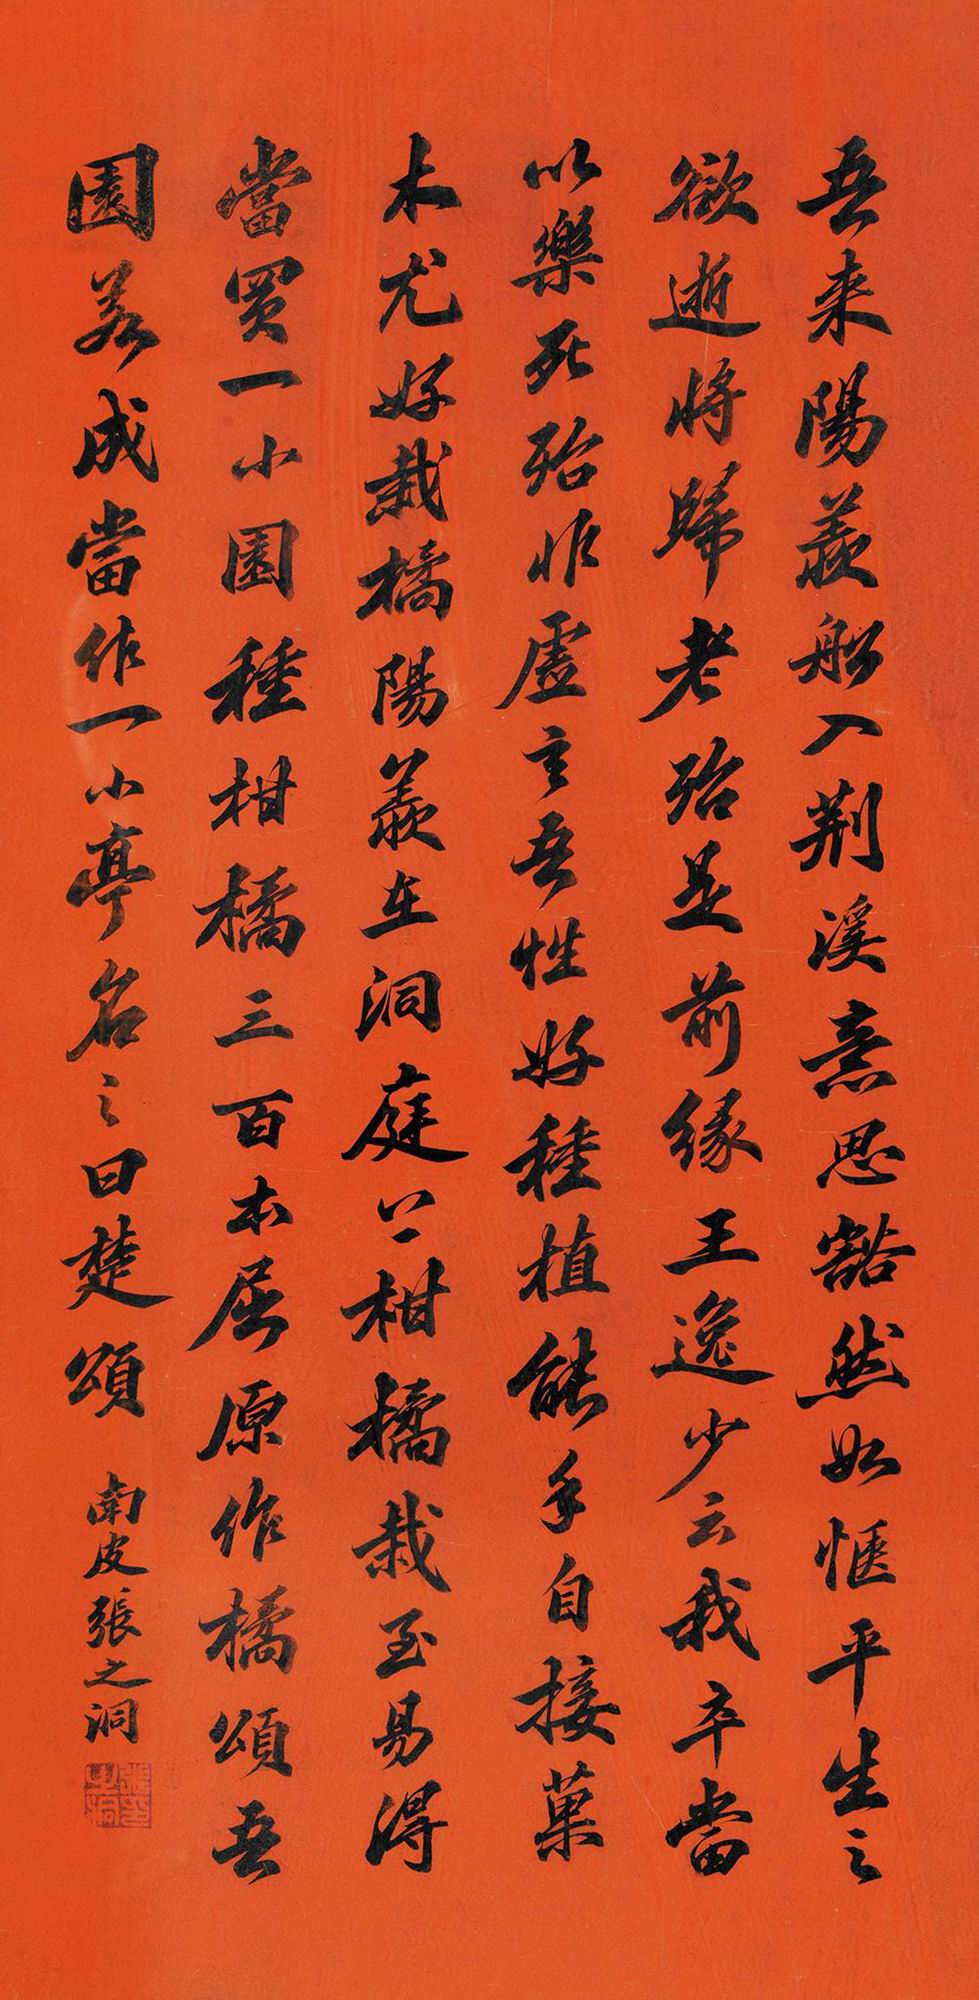 吾来陽羡船入荆溪意思豁然如惬平生之
欲逝將歸老殆是前緣王逸少云我卒當
以樂死殆非虚言吾性好種植能手自接菓
木尤好栽橘陽羡在洞庭上柑橘栽至易得
當買一小園種柑橘三百本屈原作橘頌吾
園若成當作一小亭名之曰楚頌
南皮張之洞
張之洞印